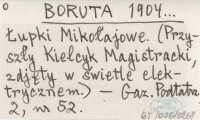 BORUTA 1904...
Łupki Mikołajowe. (Przy-
szły Kielcyk Magistracki,
zdjęty w świetle elek-
trycznem.) — Gaz. Podtatra
2, nr 52.